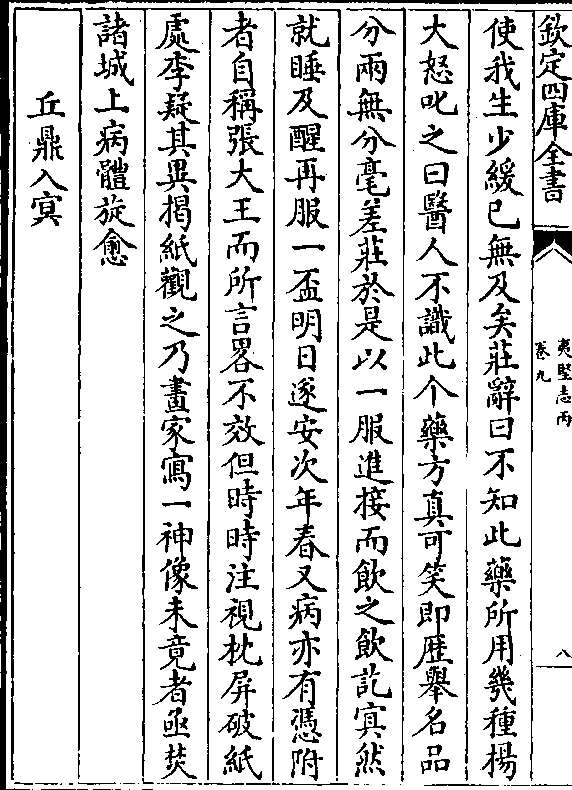 欽定四庫全書
夷堅志丙
卷九
八
使我生少緩已無及矣莊辭曰不知此藥所用幾種楊
大怒叱之曰醫人不識此个藥方真可笑即歷舉名品
分兩無分毫差莊於是以一服進接而飲之飲訖寘然
就睡及醒再服一盃明日遂安次年春又病亦有憑附
者自稱張大王而所言畧不效但時時注視枕屏破紙
處李疑其異揭紙觀之乃畫家寫一神像未竟者亟焚
諸城上病體旋愈
丘鼎入寘